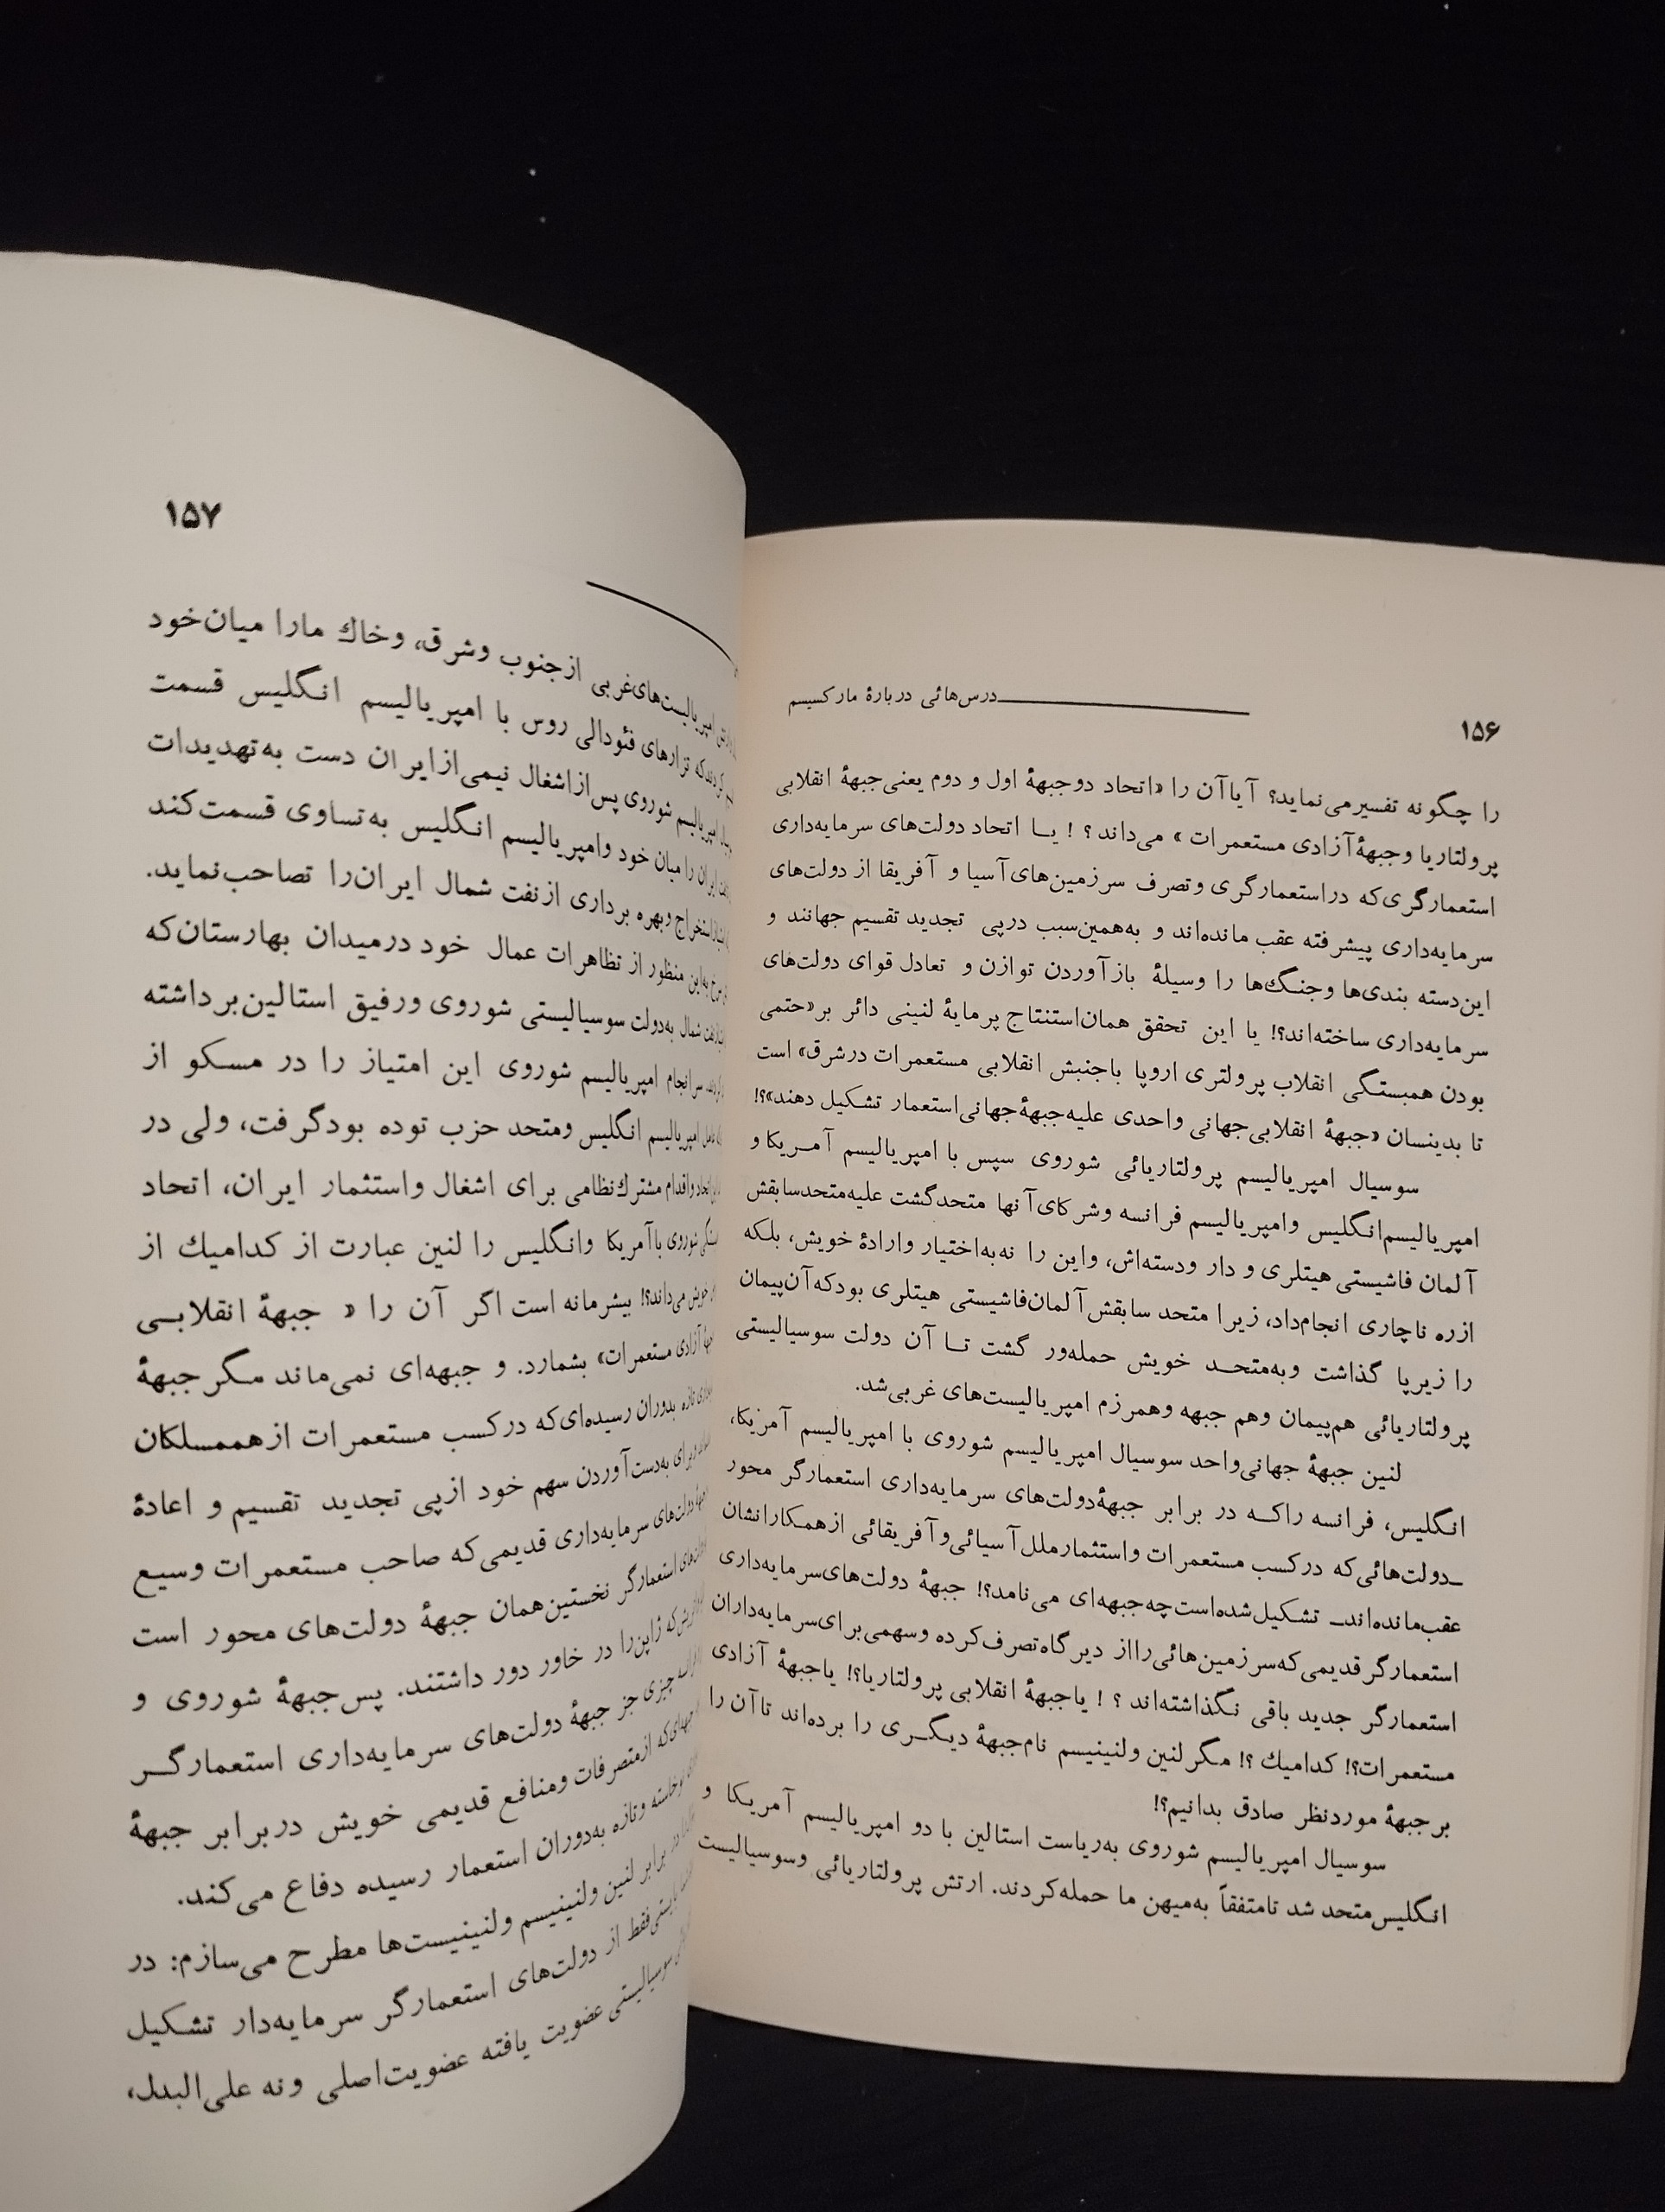 ۱۵۶
درس‌هائی دربارهٔ مارکسیسم
را چگونه تفسیرمی‌نماید؟ آیاآن را «اتحاد دوجبههٔ اول و دوم یعنی‌جبههٔ انقلابی
پرولتاریا وجبههٔ‌آزادی مستعمرات» می‌داند؟! یا اتحاد دولت‌های سرمایه‌داری
استعمارگری‌که دراستعمارگری وتصرف سرزمین‌های‌آسیا و آفریقا از دولت‌های
سرمایه‌داری پیشرفته عقب مانده‌اند و به‌همین‌سبب درپی تجدید تقسیم جهانند و
این‌دسته بندی‌ها وجنگ‌ها را وسیلهٔ بازآوردن توازن و تعادل قوای دولت‌های
سرمایه‌داری ساخته‌اند؟! یا این تحقق همان‌استنتاج پرمایهٔ لنینی دائر بر«حتمی
بودن همبستگی انقلاب پرولتری اروپا باجنبش انقلابی مستعمرات درشرق» است
تا بدینسان «جبههٔ انقلابی‌جهانی واحدی علیه‌جبههٔ‌جهانی‌استعمار تشکیل دهند»؟!
سوسیال امپریالیسم پرولتاریائی شوروی سپس با امپریالیسم آمریکا و
امپریالیسم‌انگلیس وامپریالیسم فرانسه وشرکای‌آنها متحدگشت علیه‌متحدسابقش
آلمان فاشیستی هیتلری و دار ودسته‌اش، واین را نه‌به‌اختیار وارادهٔ خویش، بلکه
ازره ناچاری انجام‌داد، زیرا متحد سابقش‌آلمان‌فاشیستی هیتلری بودکه‌آن‌پیمان
را زیرپا گذاشت وبه‌متحد خویش حمله‌ور گشت تا آن دولت سوسیالیستی
پرولتاریائی هم‌پیمان وهم جبهه وهمرزم امپریالیست‌های غربی‌شد.
لنین جبههٔ جهانی‌واحد سوسیال امپریالیسم شوروی با امپریالیسم آمریکا،
انگلیس، فرانسه راکه در برابر جبههٔ‌دولت‌های سرمایه‌داری استعمارگر محور
ـ‌دولت‌هائی‌که درکسب مستعمرات واستثمارملل‌آسیائی‌وآفریقائی ازهمکارانشان
عقب‌مانده‌اندـ تشکیل‌شده‌است‌چه‌جبهه‌ای می‌نامد؟! جبههٔ دولت‌های‌سرمایه‌داری
استعمارگرقدیمی‌که‌سرزمین‌هائی‌رااز دیرگاه‌تصرف‌کرده وسهمی‌برای‌سرمایه‌داران
استعمارگر جدید باقی نگذاشته‌اند؟! یاجبههٔ انقلابی پرولتاریا؟! یاجبههٔ آزادی
مستعمرات؟! کدامیك؟! مگرلنین ولنینیسم نام‌جبههٔ دیگری را برده‌اند تاآن را
برجبههٔ موردنظر صادق بدانیم؟!
سوسیال امپریالیسم شوروی به‌ریاست استالین با دو امپریالیسم آمریکا و
انگلیس‌متحد شد تامتفقاً به‌میهن ما حمله‌کردند. ارتش پرولتاریائی وسوسیالیست
۱۵۷
امپریالیست‌های‌غربی ازجنوب وشرق، وخاك مارا میان‌خود
تزارهای فئودالی روس با امپریالیسم انگلیس قسمت
امپریالیسم شوروی پس‌ازاشغال نیمی‌ازایران دست به‌تهدیدات
ایران را میان خود وامپریالیسم انگلیس به‌تساوی قسمت‌کند
استخراج وبهره برداری ازنفت شمال ایران‌را تصاحب‌نماید.
به‌این منظور از تظاهرات عمال خود درمیدان بهارستان‌که
شمال به‌دولت سوسیالیستی شوروی ورفیق استالین‌برداشته
سرانجام امپریالیسم شوروی این امتیاز را در مسکو از
امپریالیسم انگلیس ومتحد حزب توده بودگرفت، ولی در
واقدام مشترك‌نظامی برای اشغال واستثمار ایران، اتحاد
شوروی باآمریکا وانگلیس را لنین عبارت از کدامیك از
خویش می‌داند؟! بیشرمانه است اگر آن را « جبههٔ انقلابی
آزادی مستعمرات» بشمارد. و جبهه‌ای نمی‌ماند مگرجبههٔ
تازه بدوران رسیده‌ای‌که درکسب مستعمرات ازهممسلکان
برای به‌دست‌آوردن سهم خود ازپی تجدید تقسیم و اعادهٔ
دولت‌های سرمایه‌داری قدیمی‌که صاحب مستعمرات وسیع
استعمارگر نخستین‌همان جبههٔ دولت‌های محور است
ژاپن‌را در خاور دور داشتند. پس‌جبههٔ شوروی و
چیزی جز جبههٔ دولت‌های سرمایه‌داری استعمارگر
ازمتصرفات ومنافع قدیمی خویش دربرابر جبههٔ
وتازه به‌دوران استعمار رسیده دفاع می‌کند.
برابر لنین ولنینیسم ولنینیست‌ها مطرح می‌سازم: در
فقط از دولت‌های استعمارگر سرمایه‌دار تشکیل
سوسیالیستی عضویت یافته عضویت‌اصلی ونه علی‌البدل،